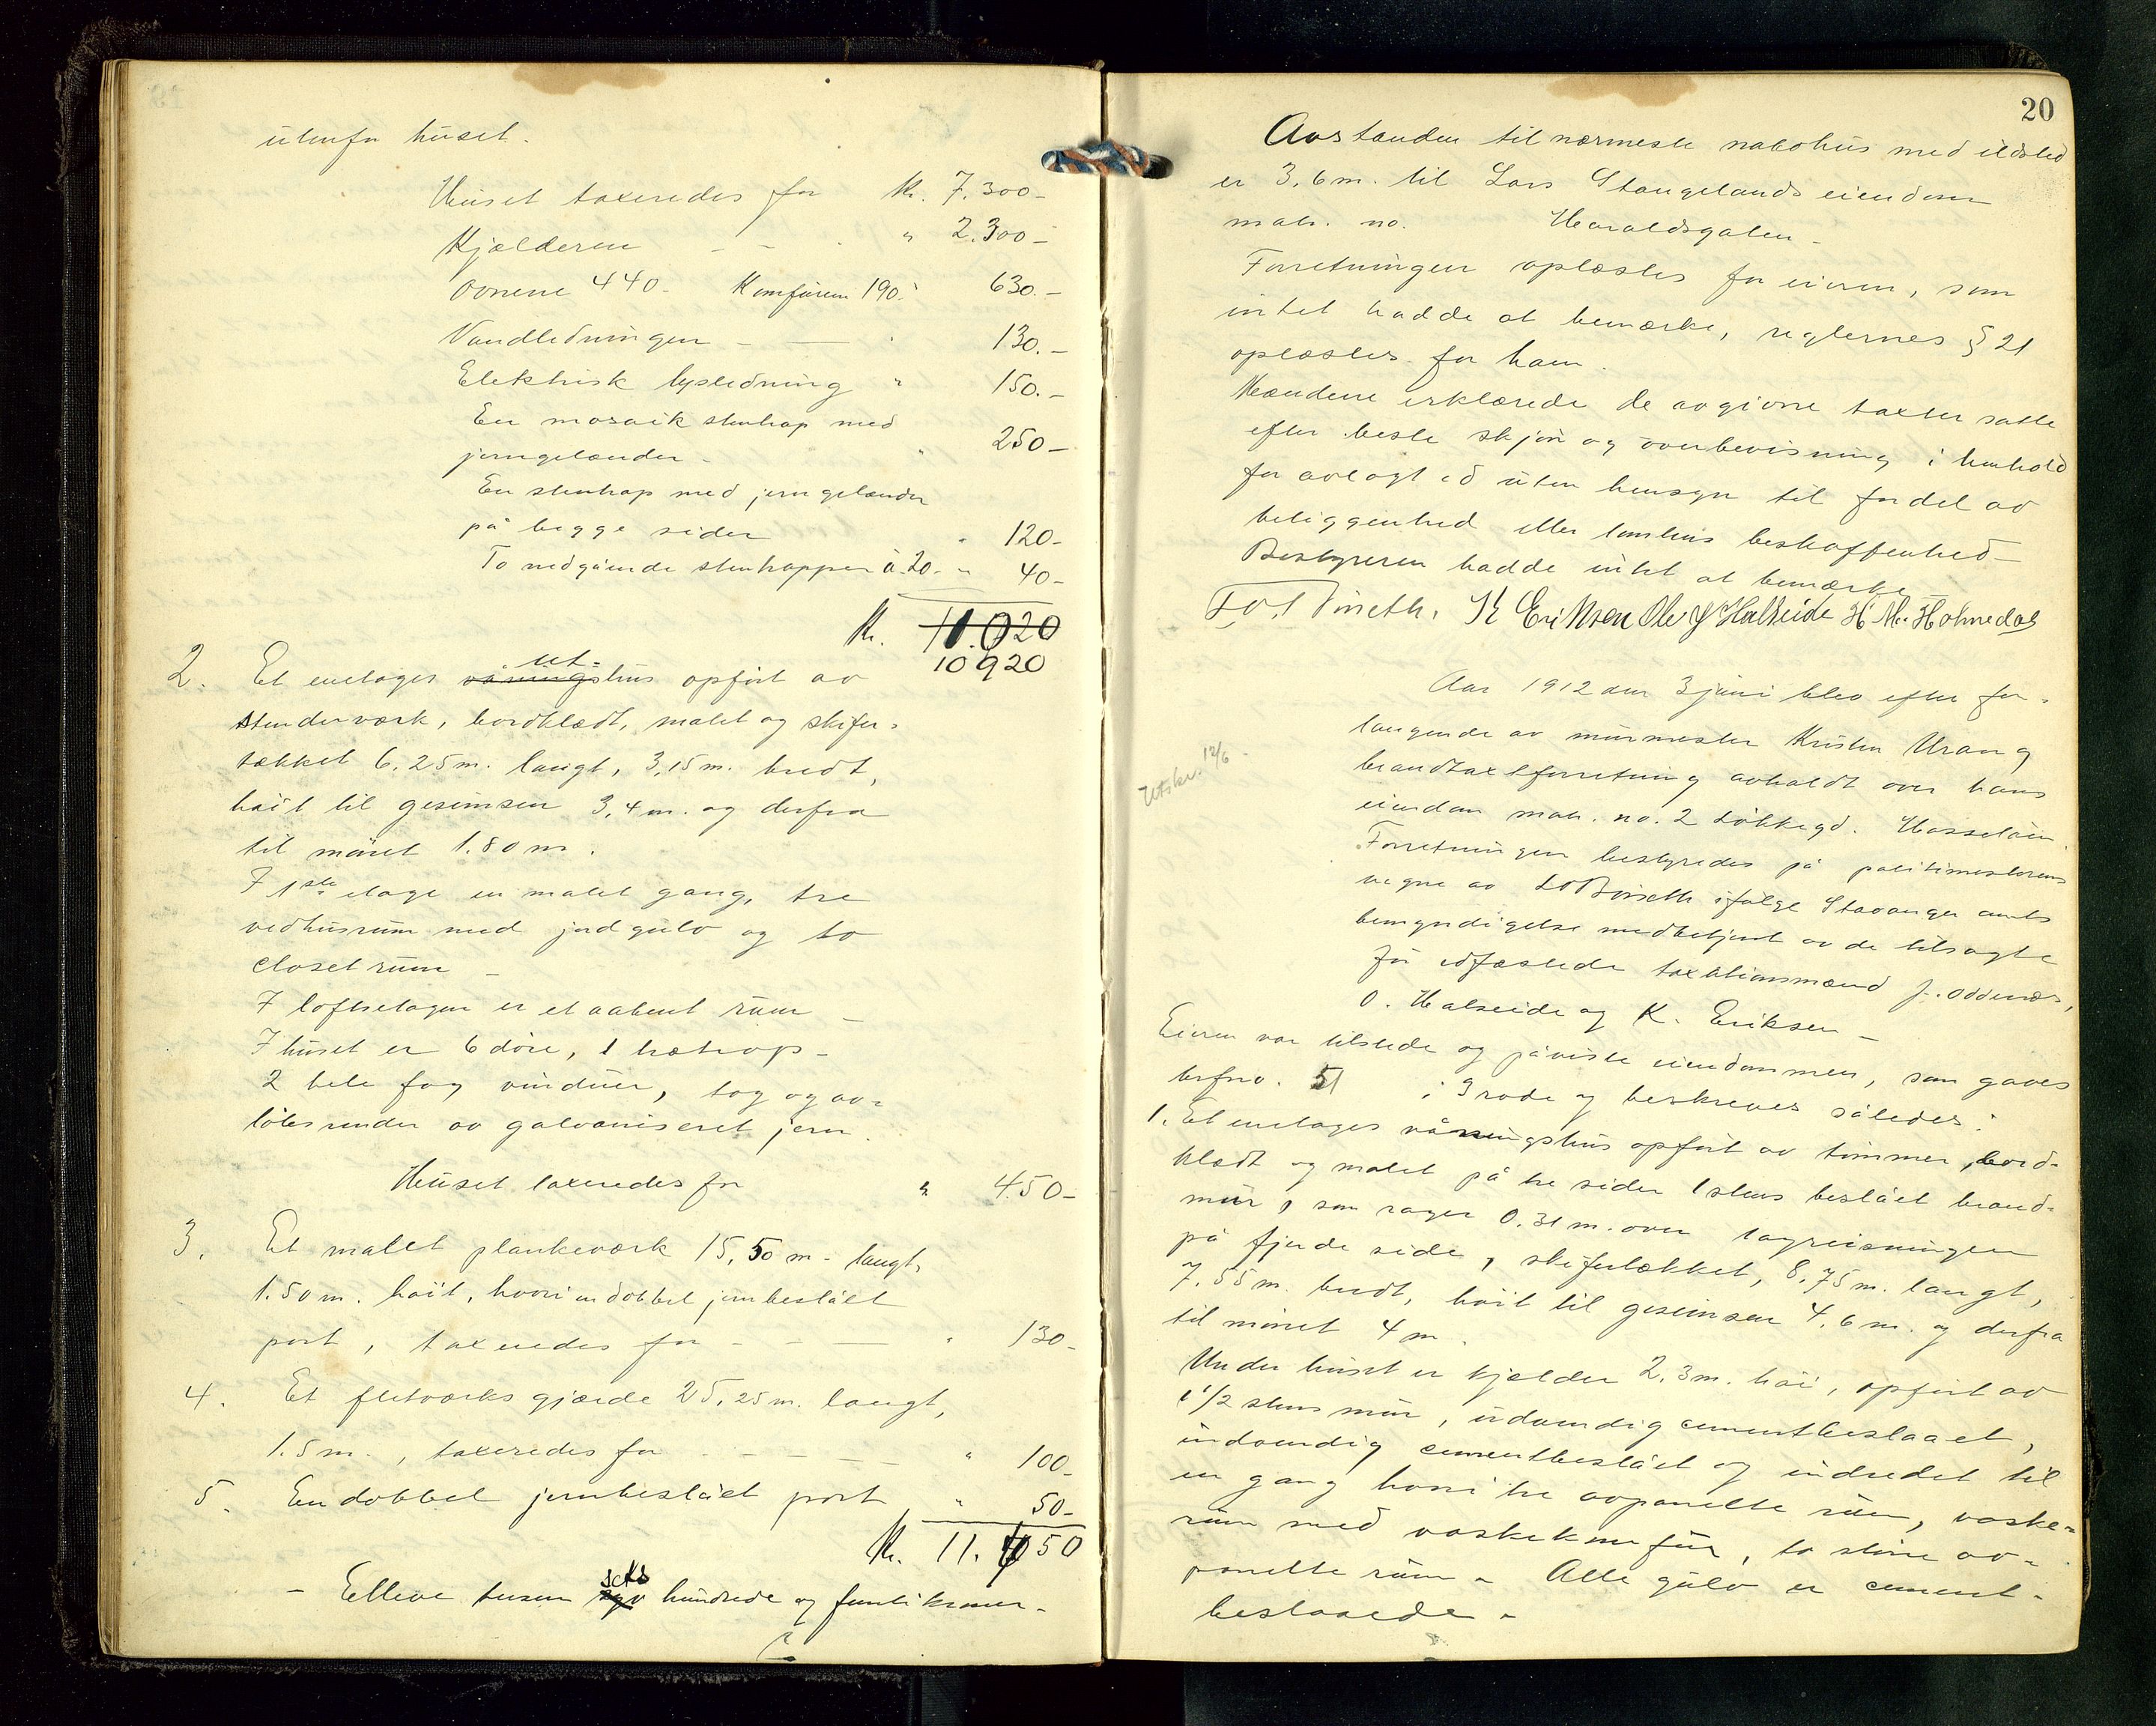 utenfor huset.
Huset taxeredes for Kr. 7.300-
Kjælderen - - . " 2.300-
Ovnene 440.- Komfuren 190.- 630.-
Vandledningen - — . 130.-
Elektrisk lysledning " 150.-
En mosaik stentrap med
jerngelænder - " 250-
En stentrap med jerngelænder
på begge sider " 120-
To nedgående stentrapper à 20.- " 40-
Kr. 11.020
10920
2. Et enetages våningshus ut- opført av
stenderværk, bordklædt, malet og skifer-
tækket 6,25 m. langt, 3,15 m. bredt,
høit til gesimsen 3,4 m. og derfra
til mønet 1.80 m.
I 1ste etage en malet gang, tre
vedhusrum med jordgulv og to
closetrum -
I loftsetagen er et aabent rum -
I huset er 6 døre, 1 trætrap -
2 hele fag vinduer, tag og av-
løbsrender av galvaniseret jern.
Huset taxeredes for " 450-
3. Et malet plankeværk 15,50 m. langt,
1.50 m. høit, hvori en dobbel jernbeslået
port, taxeredes for - - — " 130-
4. Et fletværksgjærde 25,25 m. langt,
1.5 m., taxeredes for - - - — " 100-
5. En dobbel jernbeslået port " 50-
Kr. 11.650
- Elleve tusen seks hundrede og femti kroner -
20
Avstanden til nærmeste nabohus med ildsted
er 3,6 m. til Lars Stangelands eiendom
matr. no. Haraldsgaten -
Forretningen oplæstes for eieren, som
intet hadde at bemærke, reglernes § 21
oplæstes for ham.
Mændene erklærede de avgivne taxter satte
efter beste skjøn og overbevisning i henhold
før avlagt ed uten hensyn til fordel av
beliggenhed eller tomtens beskaffenhed -
Bestyreren hadde intet at bemærke
K Eriksen Ole J Halseide H. M. Holmedal
Utskr. 12/6 -
Aar 1912 den 3 juni blev efter for-
langende av murmester Kristen Urang
brandtaxtforretning avholdt over hans
eiendom matr. no. 2 Løkkegd. Hasseløen.
Forretningen bestyredes på politimesterens
vegne av i følge Stavanger amts
bemyndigelse medbetjent av de tilsagte
før edfæstede taxationsmænd J. Oddenes,
O. Halseide og K. Eriksen -
Eieren var tilstede og påviste eiendommen, som gaves
brfno. 51 i 3 rode og beskreves således:
1. Et enetages våningshus opført av tømmer, bord-
klædt og malet på tre sider 1 stens beslået brand-
mur, som rager 0.31 m. over tagreisningen
på fjerde side, skifertækket, 8,75 m. langt,
7.55 m. bredt, høit til gesimsen 4,6 m. og derfra
til mønet 4 m.
Under huset er kjælder 2.3 m. høi, opført av
1 1/2 stens mur, udvendig cementbeslaaet,
indvendig cementbeslået og indredet til
en gang hvori tre avpanelte rum, vaske-
rum med vaskekomfur, to større av-
panelte rum - Alle gulv er cement-
beslaaede -